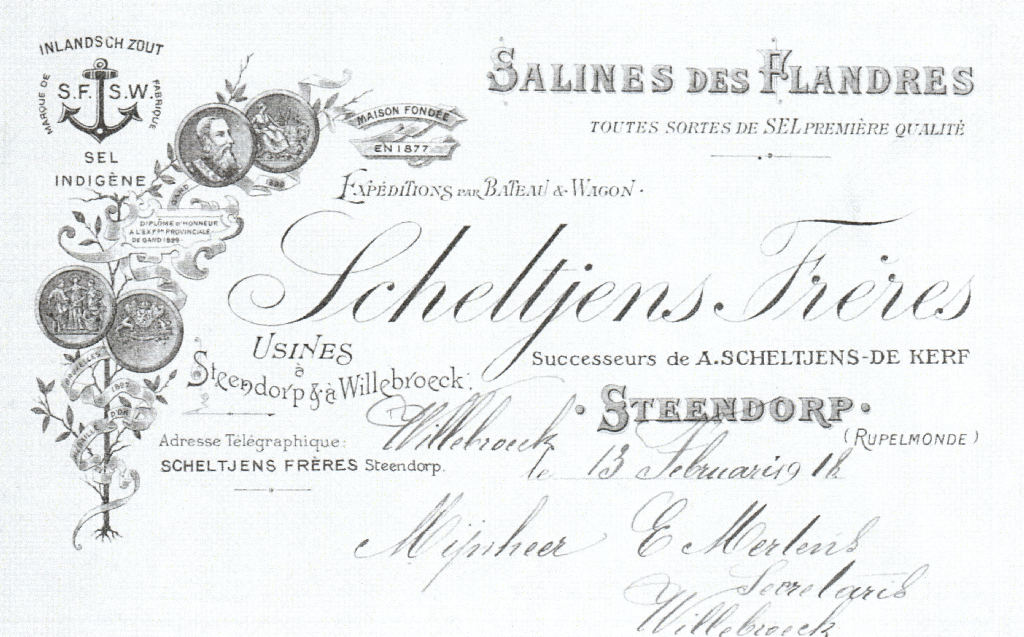 INLANDSCH ZOUT
MARQUE DE FABRIQUE
S.F. S.W.
SEL
INDIGÈNE
MAISON FONDÉE
EN 1877
DIPLÔME D'HONNEUR
A L'EXP^on PROVINCIALE
DE GAND 1899
BRUXELLES
D'OR
SALINES DES FLANDRES
TOUTES SORTES DE SEL PREMIÈRE QUALITÉ
EXPÉDITIONS PAR BATEAU & WAGON.
Scheltjens Frères
Successeurs de A. SCHELTJENS-DE KERF
USINES
à
Steendorp & à Willebroeck.
· STEENDORP ·
(RUPELMONDE)
Adresse Télégraphique:
SCHELTJENS FRÈRES Steendorp.
Willebroeck
le 13 Februari 1918
Mijnheer E Mertens
Secretaris
Willebroeck